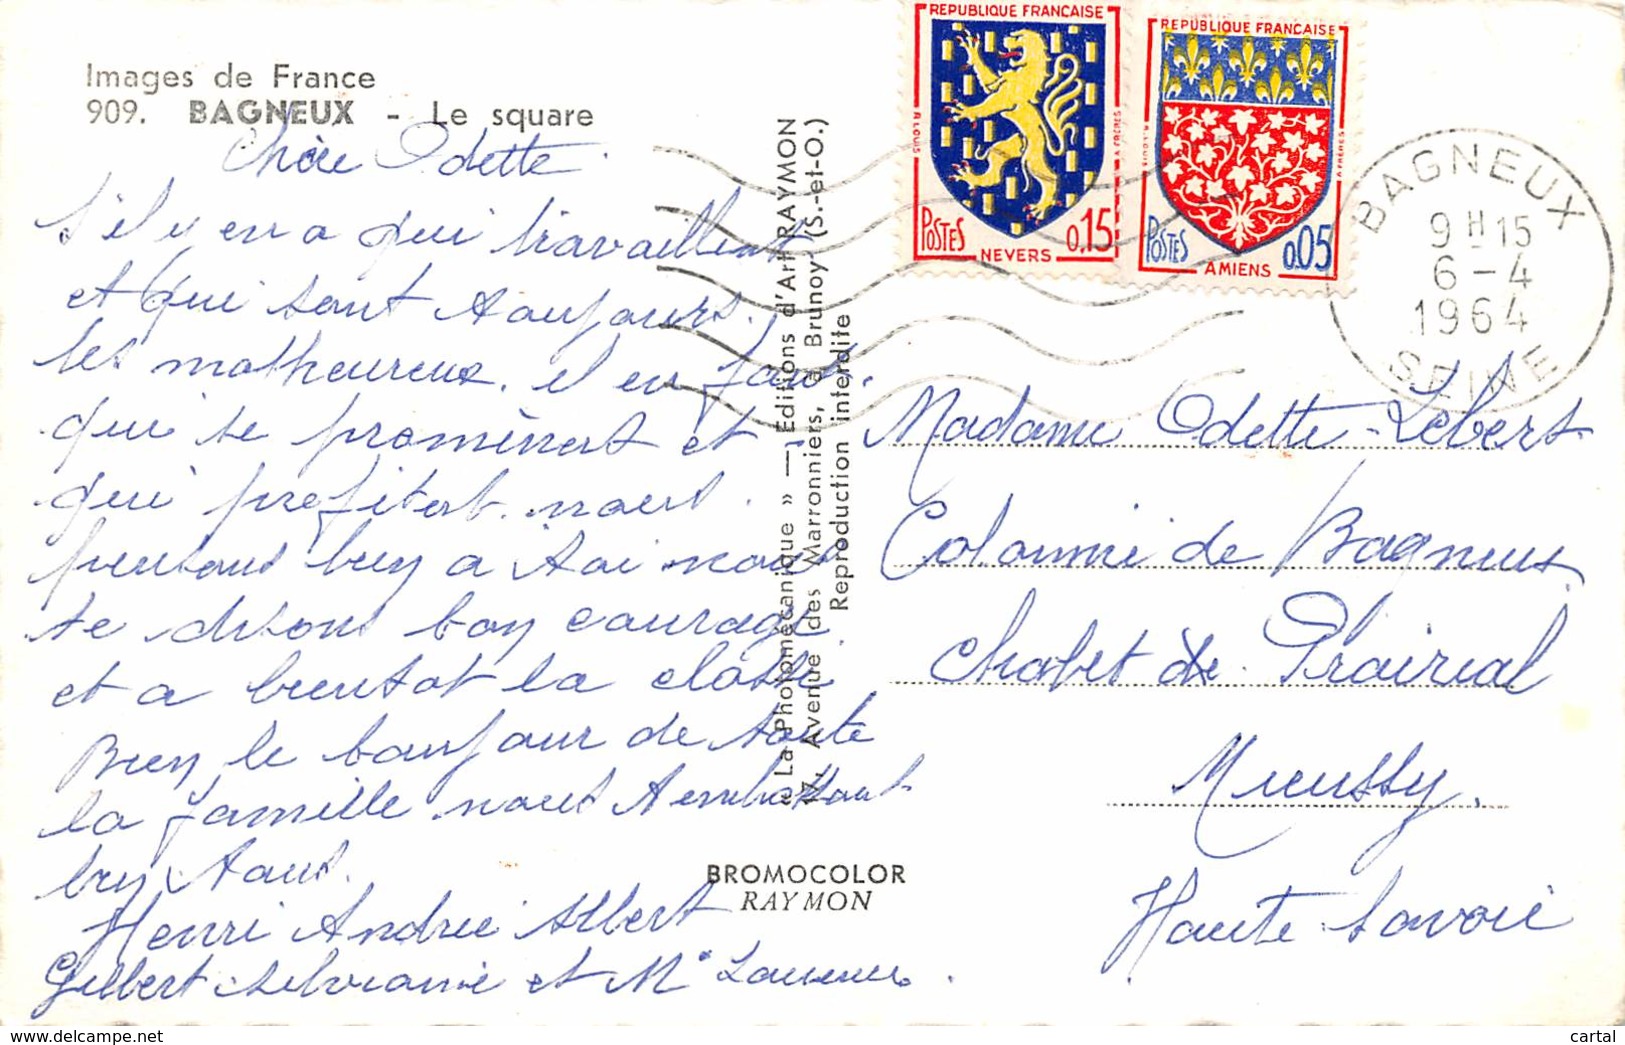 Images de France
909. BAGNEUX - Le square
Chère Odette.
S'il y en a qui travaillent
et qui sont toujours.
les malheureux. il en faut.
qui se promènent et
qui profitent. nous.
pensons bien a toi nous
te disons bon courage.
et a bientot la classe
Bien le bonjour de toute
la famille nous t'embrassons
bien tous.
Henri Andrée Albert
Gilbert et Mr
« La Photomécanique » — Editions d'Art RAYMON
Avenue des Marronniers, à Brunoy (S.-et-O.)
Reproduction interdite
BROMOCOLOR
RAYMON
REPUBLIQUE FRANÇAISE
POSTES
0,15
NEVERS
REPUBLIQUE FRANÇAISE
POSTES
0,05
AMIENS
BAGNEUX
9H15
6-4
1964
SEINE
Madame Odette Lebert
Colonnie de Bagneux.
Chalet de Prairial
Mieussy.
Haute Savoie
cartal